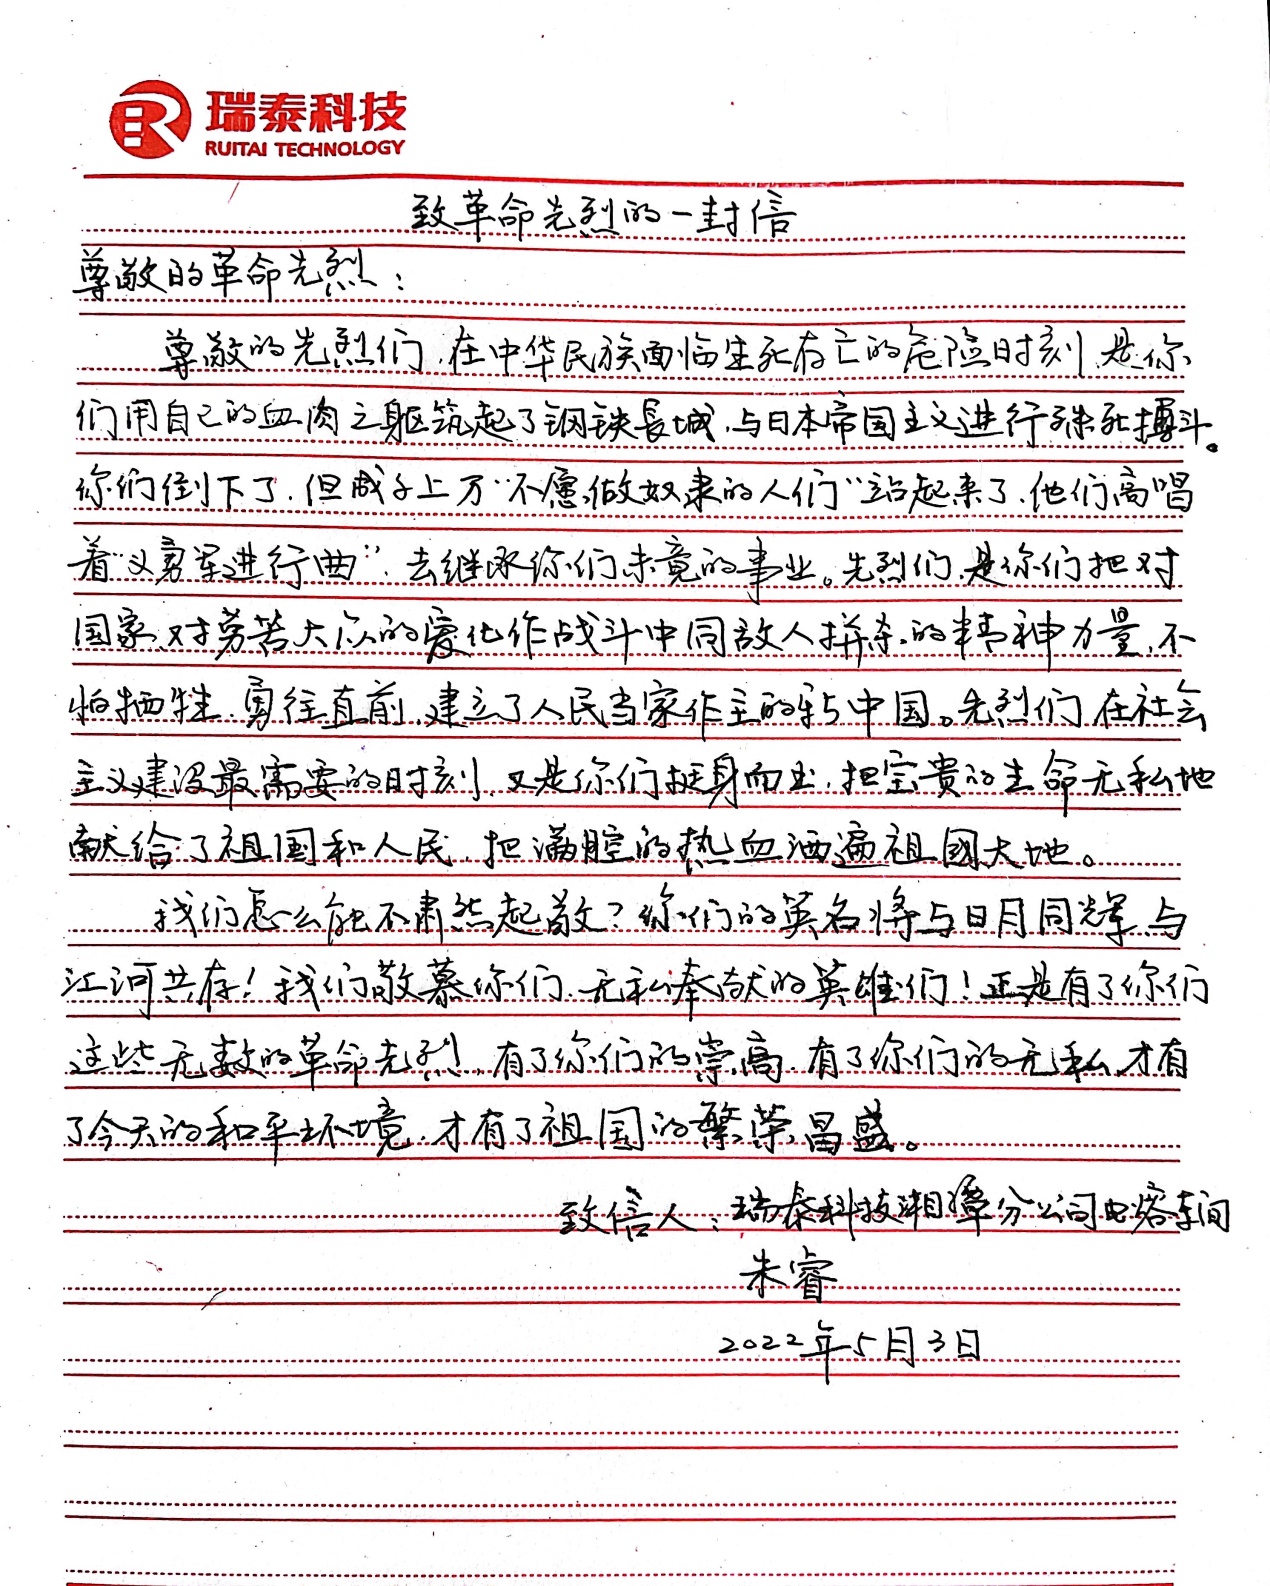 瑞泰科技
RUITAI TECHNOLOGY
致革命先烈的一封信
尊敬的革命先烈：
尊敬的先烈们，在中华民族面临生死存亡的危险时刻，是你
们用自己的血肉之躯筑起了钢铁長城，与日本帝国主义进行殊死搏斗。
你们倒下了，但成千上万“不愿做奴隶的人们”站起来了，他们高唱
着“义勇军进行曲”，去继承你们未竟的事业。先烈们，是你们把对
国家、对劳苦大众的爱化作战斗中同敌人拼杀的精神力量，不
怕牺牲，勇往直前，建立了人民当家作主的新中国。先烈们，在社会
主义建设最需要的时刻，又是你们挺身而出，把宝贵的生命无私地
献给了祖国和人民，把满腔的热血洒遍祖國大地。
我们怎么能不肃然起敬？你们的英名将与日月同辉，与
江河共存！我们敬慕你们，无私奉献的英雄们！正是有了你们
这些无数的革命先烈，有了你们的崇高，有了你们的无私，才有
了今天的和平环境，才有了祖国的繁荣昌盛。
致信人：瑞泰科技湘潭分公司电熔车间
朱睿
2022年5月3日